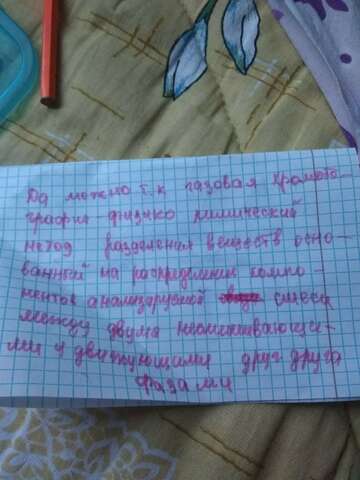 Да можно т.к газовая хромото-
графия физико химический
метод разделения веществ осно-
ванный на распределении компо-
нентов анализируемой смеси
между двума несмешивающи-
мися и двитующимися друг друга
фазами